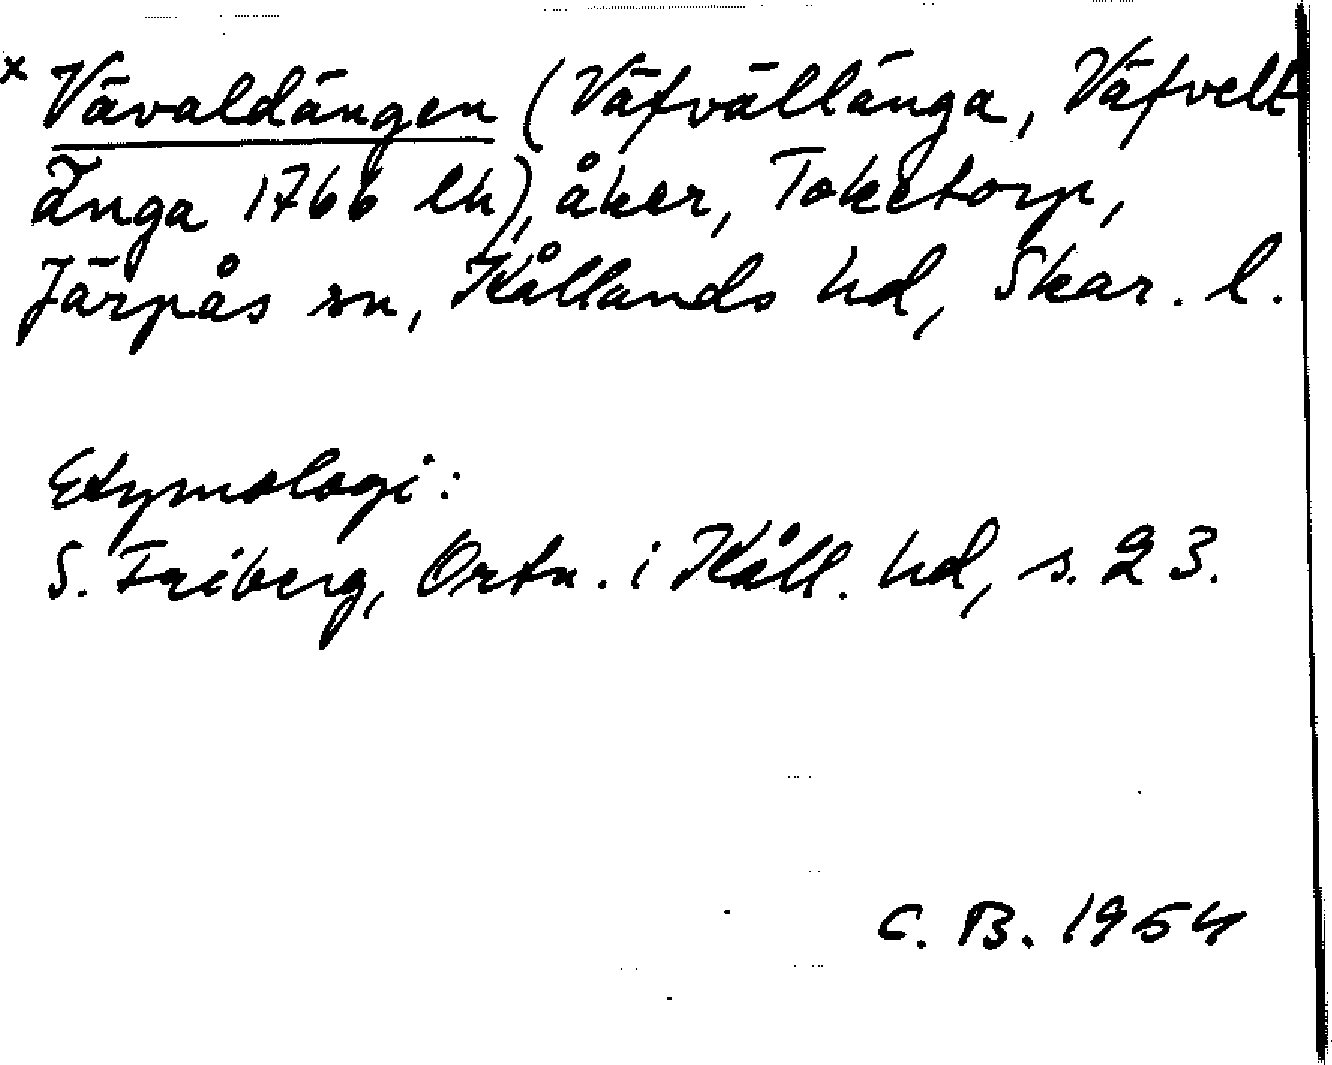 x Vävaldängen (Väfvällänga, Väfvellt
Änga 1766 lh), åker, Toketorp,
Järpås sn, Kållands hd, Skar. l.
Etymologi:
S. Friberg, Ortn. i Kåll. hd, s. 23.
C. B. 1954